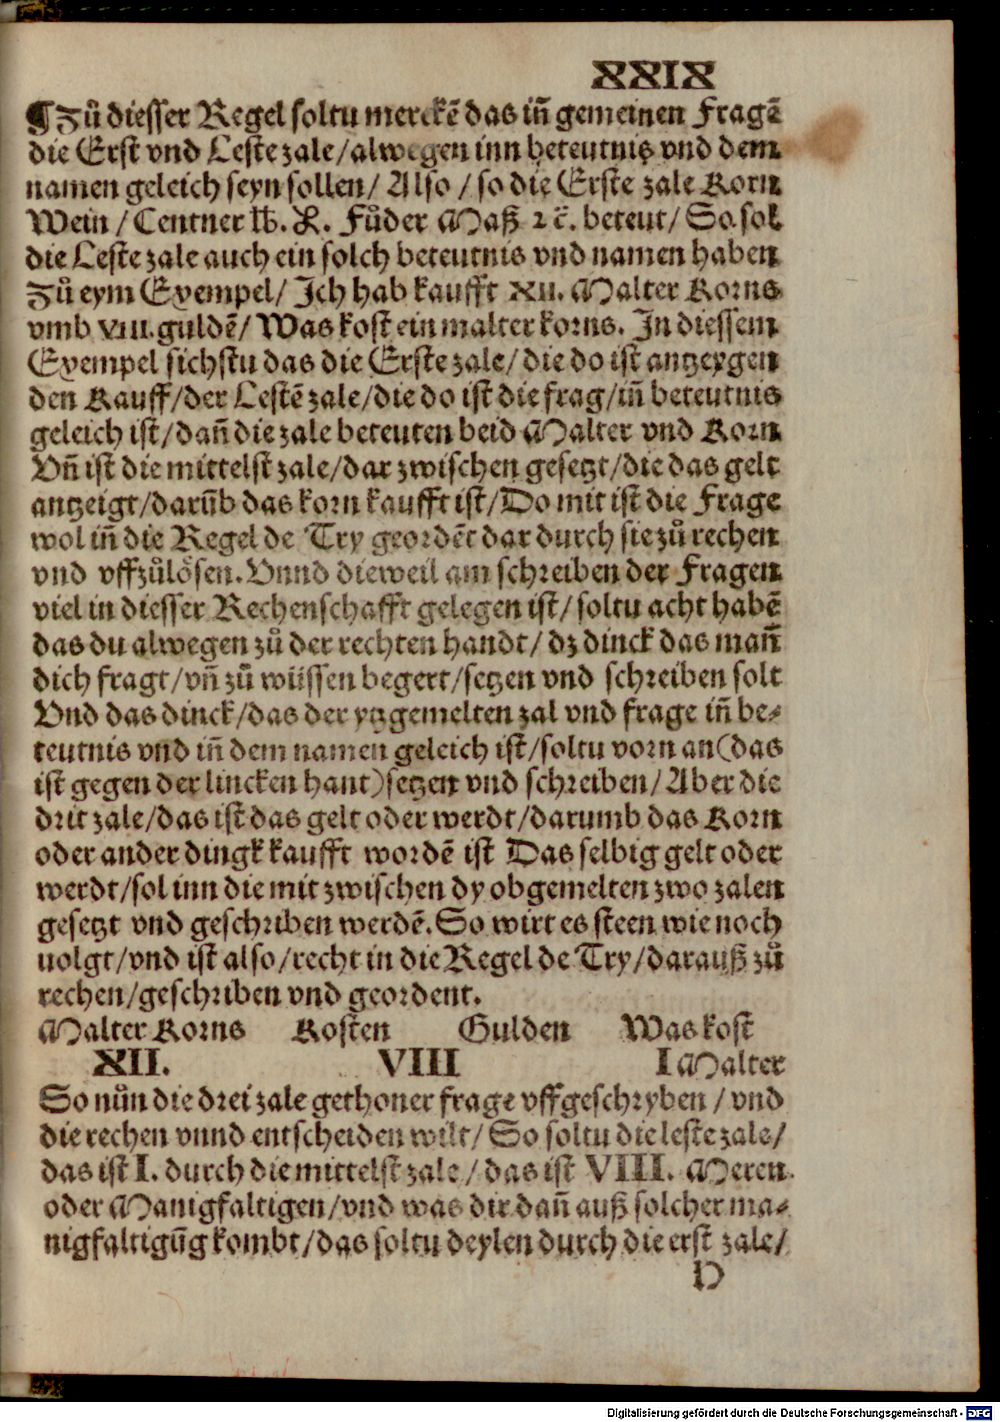 XXIX
¶Zů diesser Regel soltu merckē das iñ gemeinen Fragē
die Erst vnd Leste zale/alwegen inn beteutnis vnd dem
namen geleich seyn sollen/ Also / so die Erste zale Korn
Wein / Centner lb. Fůder Maß ꝛc̈. beteut/ So sol
die Leste zale auch ein solch beteutnis vnd namen haben
Zů eym Exempel/ Ich hab kaufft XII. Malter Korns
vmb VIII. guldē/ Was kost ein malter korns. In diessem
Exempel sichstu das die Erste zale/ die do ist antzeygen
den Kauff/der Lestē zale/die do ist die frag/iñ beteutnis
geleich ist/dañ die zale beteuten beid Malter vnd Korn
Vñ ist die mittelst zale/dar zwischen gesetzt/die das gelt
antzeigt/darūb das korn kaufft ist/Do mit ist die Frage
wol iñ die Regel de Try geordēt dar durch sie zů rechen
vnd vffzůlösen. Vnnd dieweil am schreiben der Fragen
viel in diesser Rechenschafft gelegen ist/ soltu acht habē
das du alwegen zů der rechten handt/ dz dinck das mañ
dich fragt/vñ zů wüssen begert/setzen vnd schreiben solt
Vnd das dinck/das der ytzgemelten zal vnd frage iñ be⸗
teutnis vnd iñ dem namen geleich ist/soltu vorn an(das
ist gegen der lincken hant)setzen vnd schreiben/ Aber die
drit zale/das ist das gelt oder werdt/darumb das Korn
oder ander dingk kaufft wordē ist Das selbig gelt oder
werdt/sol inn die mit zwischen dy obgemelten zwo zalen
gesetzt vnd geschriben werdē. So wirt es steen wie noch
uolgt/vnd ist also/recht in die Regel de Try/darauß zů
rechen/geschriben vnd geordent.
Malter Korns Kosten Gulden Was kost
XII. VIII I Malter
So nůn die drei zale gethoner frage vffgeschryben / vnd
die rechen vnnd entscheiden wilt/ So soltu die leste zale/
das ist I. durch die mittelst zale / das ist VIII. Meren
oder Manigfaltigen/vnd was dir dañ auß solcher ma⸗
nigfaltigūg kombt/das soltu deylen durch die erst zale/
D
Digitalisierung gefördert durch die Deutsche Forschungsgemeinschaft - DFG